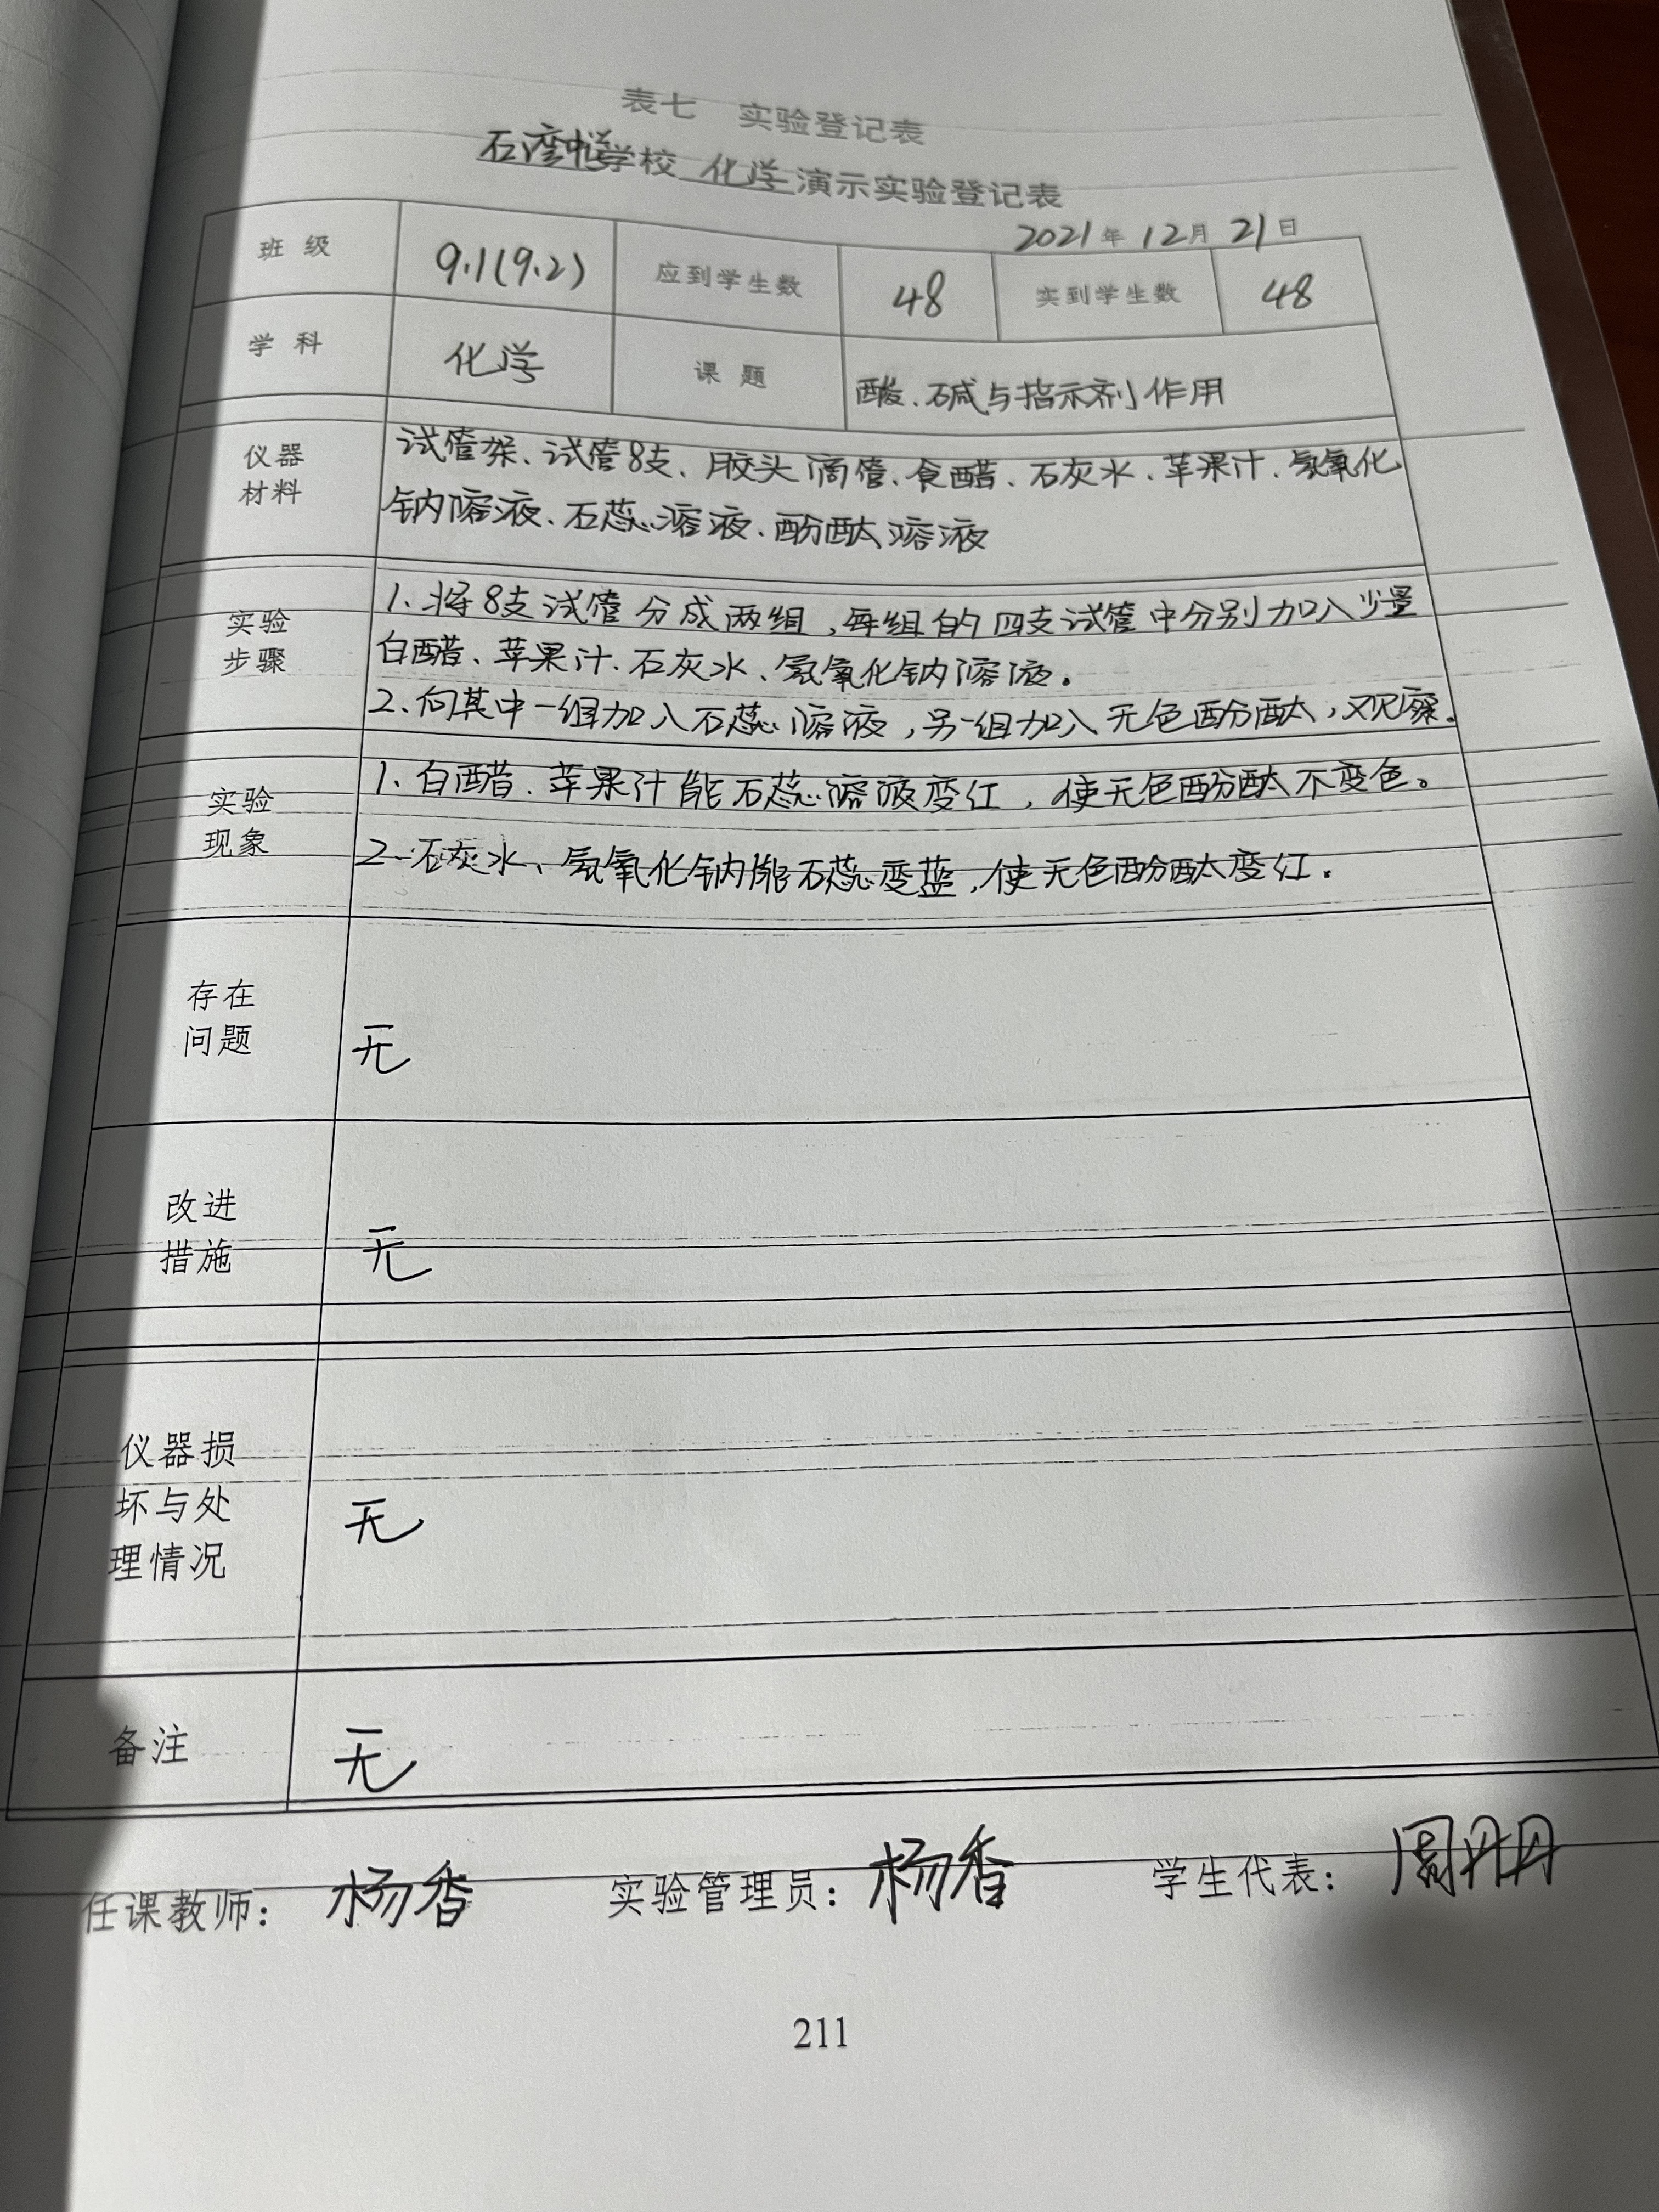 表七 实验登记表
石湾中学学校 化学 演示实验登记表
2021年 12月 21日
班 级 9.1(9.2) 应到学生数 48 实到学生数 48
学 科 化学 课 题 酸、碱与指示剂作用
仪器
材料
试管架、试管8支、胶头滴管、食醋、石灰水、苹果汁、氢氧化
钠溶液、石蕊溶液、酚酞溶液
实验
步骤
1、将8支试管分成两组，每组的四支试管中分别加入少量
白醋、苹果汁、石灰水、氢氧化钠溶液。
2、向其中一组加入石蕊溶液，另一组加入无色酚酞，观察。
实验
现象
1、白醋、苹果汁能石蕊溶液变红，使无色酚酞不变色。
2、石灰水、氢氧化钠能石蕊变蓝，使无色酚酞变红。
存在
问题
无
改进
措施
无
仪器损
坏与处
理情况
无
备注 无
任课教师：杨香 实验管理员：杨香 学生代表：周
211